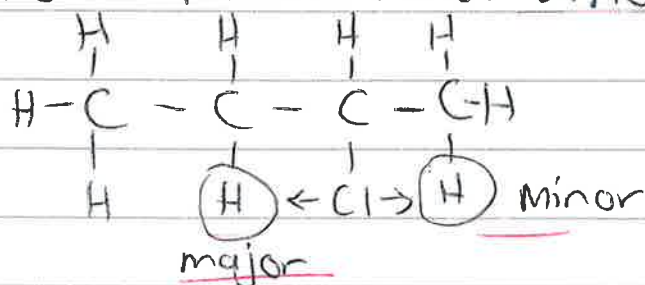 H H H H
H-C - C - C - C-H
H H ← Cl → H Minor
major